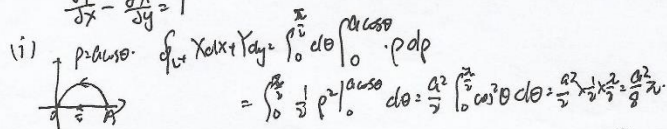 ∂x - ∂y = 1
(i) ρ=acosθ. ∮_{L+} Xdx+Ydy = ∫_0^{π/2} dθ ∫_0^{acosθ} ·ρdρ
= ∫_0^{π/2} 1/2 ρ²|_0^{acosθ} dθ = a²/2 ∫_0^{π/2} cos²θ dθ = a²/2 × 1/2 × π/2 = a²/8 π.